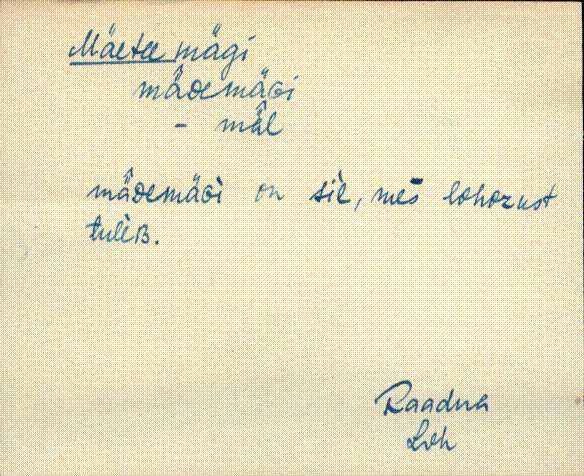 Mäetee mägi
mä̂demäɢi
- mä̂l
mä̂demäɢì on siìl, mes lohozust
tulìʙ.
Raadna
Loh